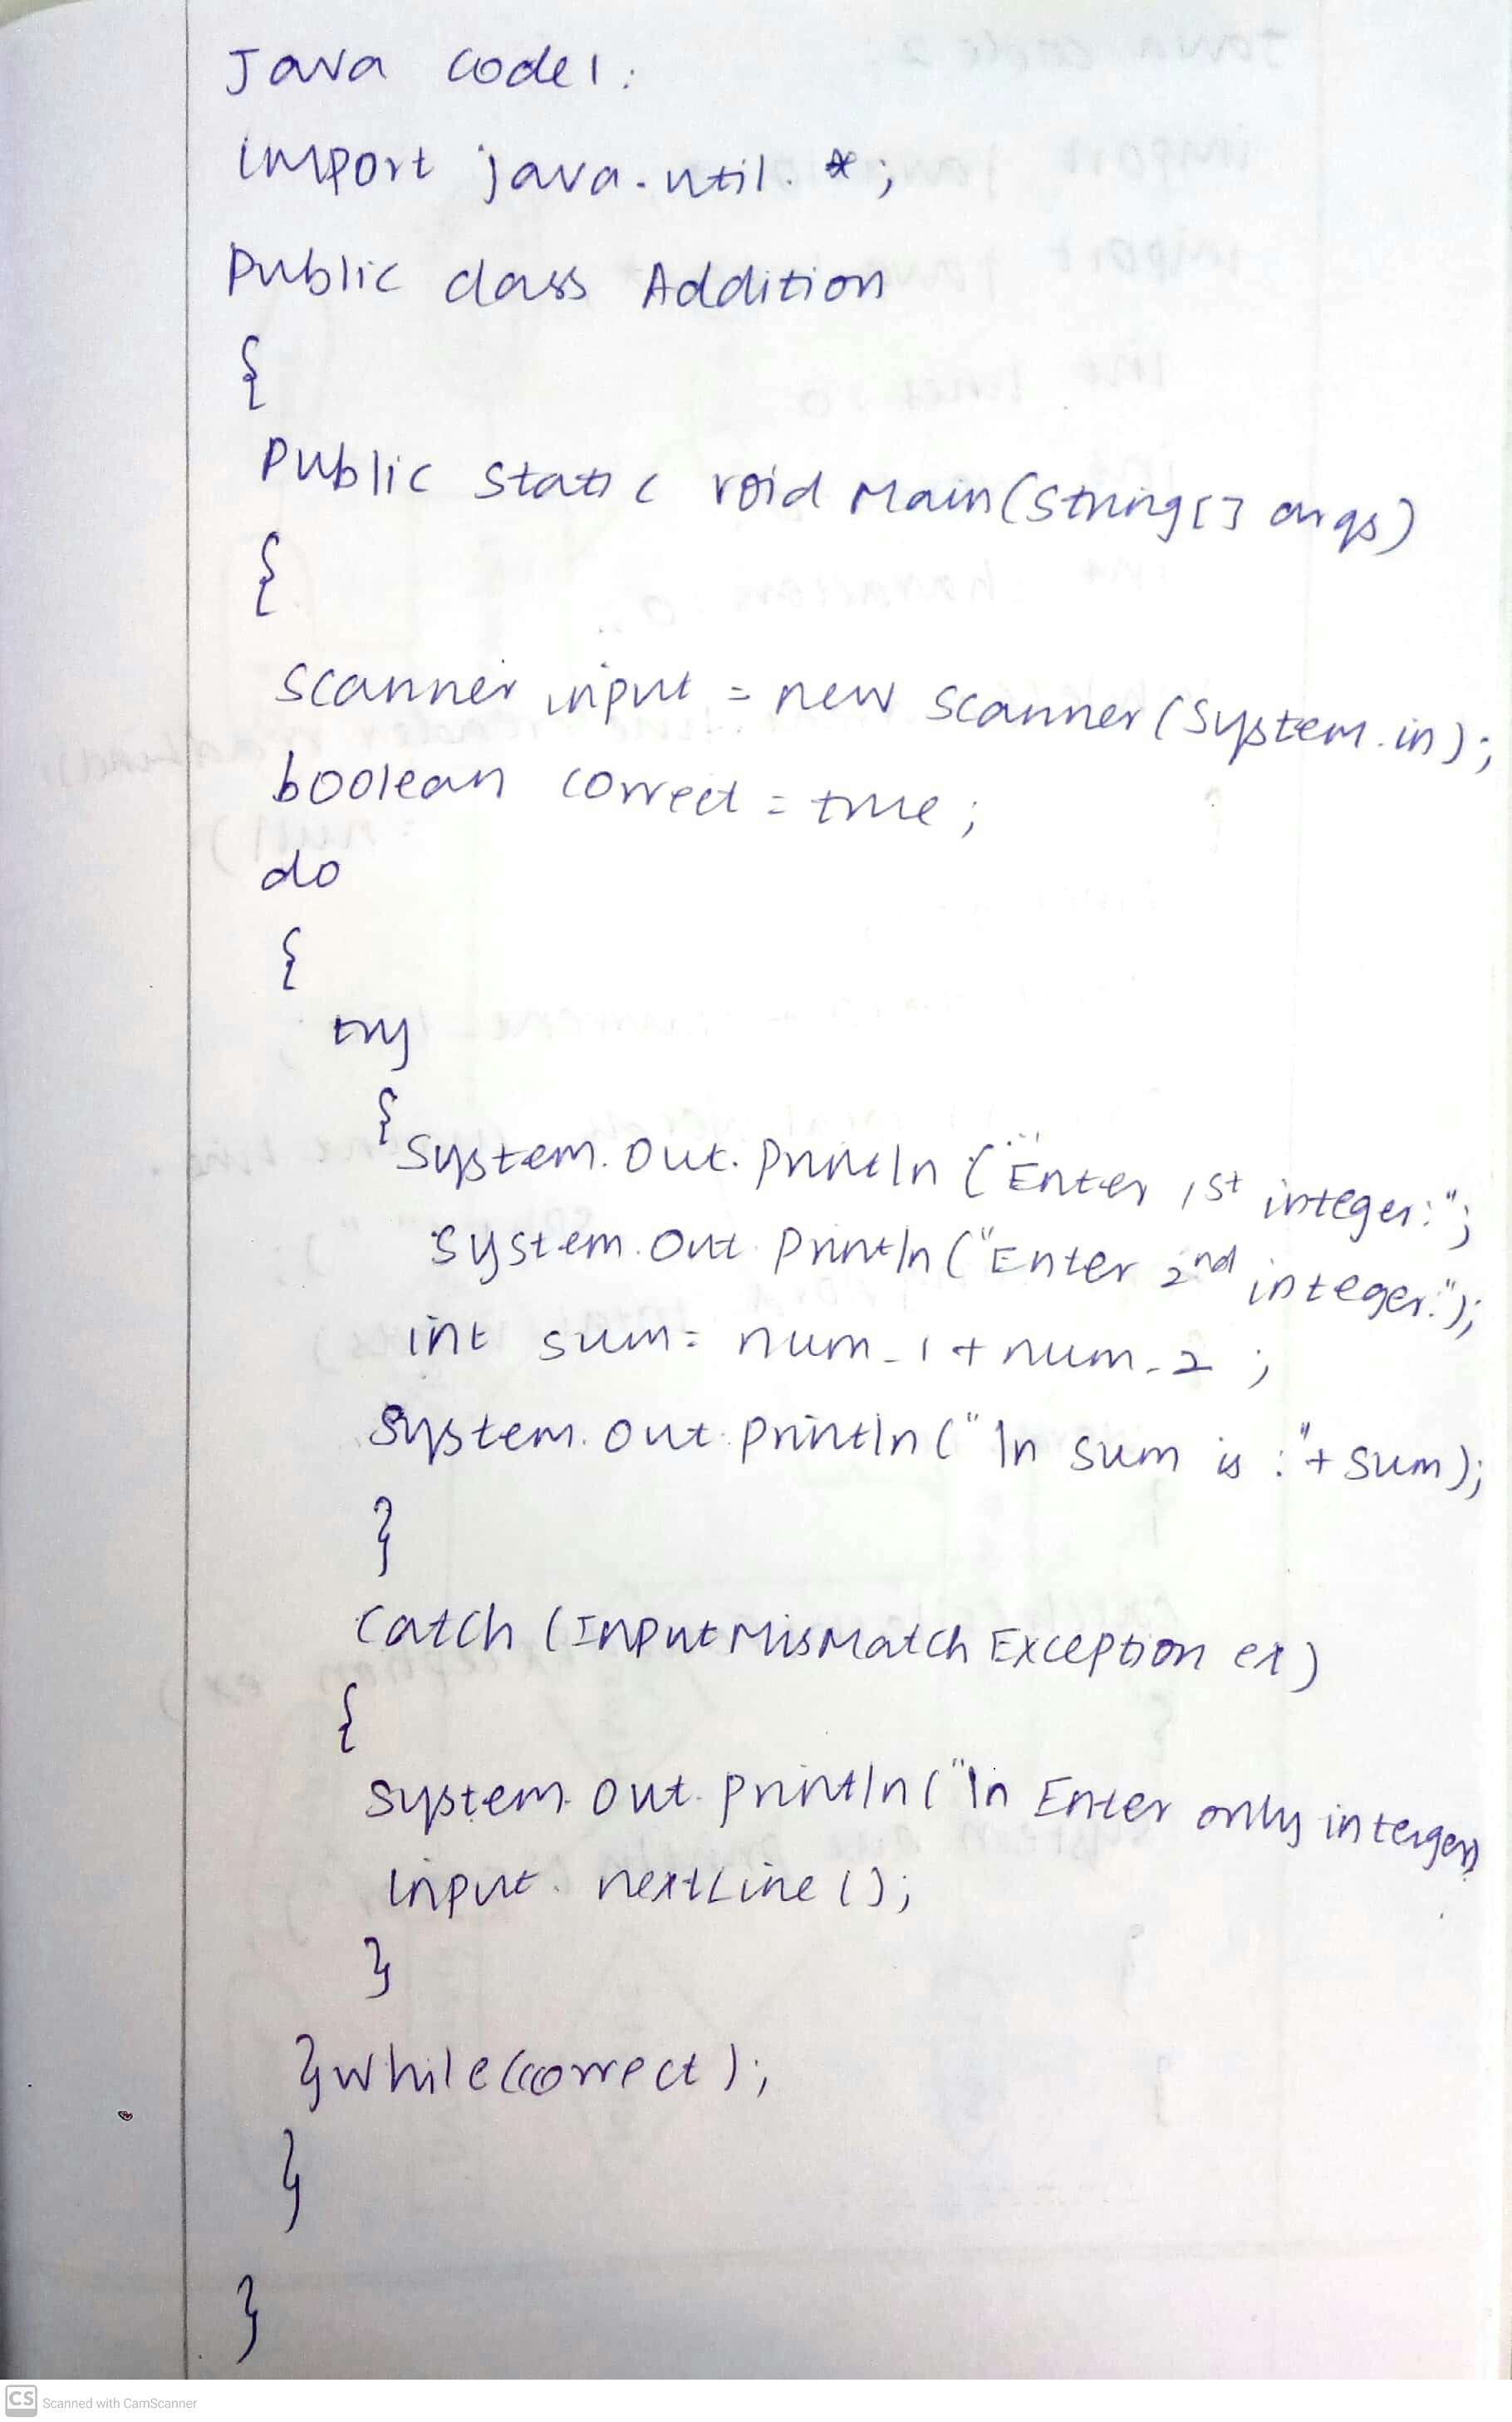 Java code 1:
import java.util.*;
Public class Addition
{
Public static void Main(String[] args)
{
Scanner input = new Scanner(System.in);
boolean correct = true;
do
{
try
{
System.out.println("Enter 1st integer:";
System.out.println("Enter 2nd integer:");
int sum = num_1+num_2;
System.out.println("\n sum is :"+sum);
}
catch (InputMisMatchException ex)
{
System.out.println("\n Enter only interger);
input.nextLine();
}
}while(correct);
}
}
CS Scanned with CamScanner